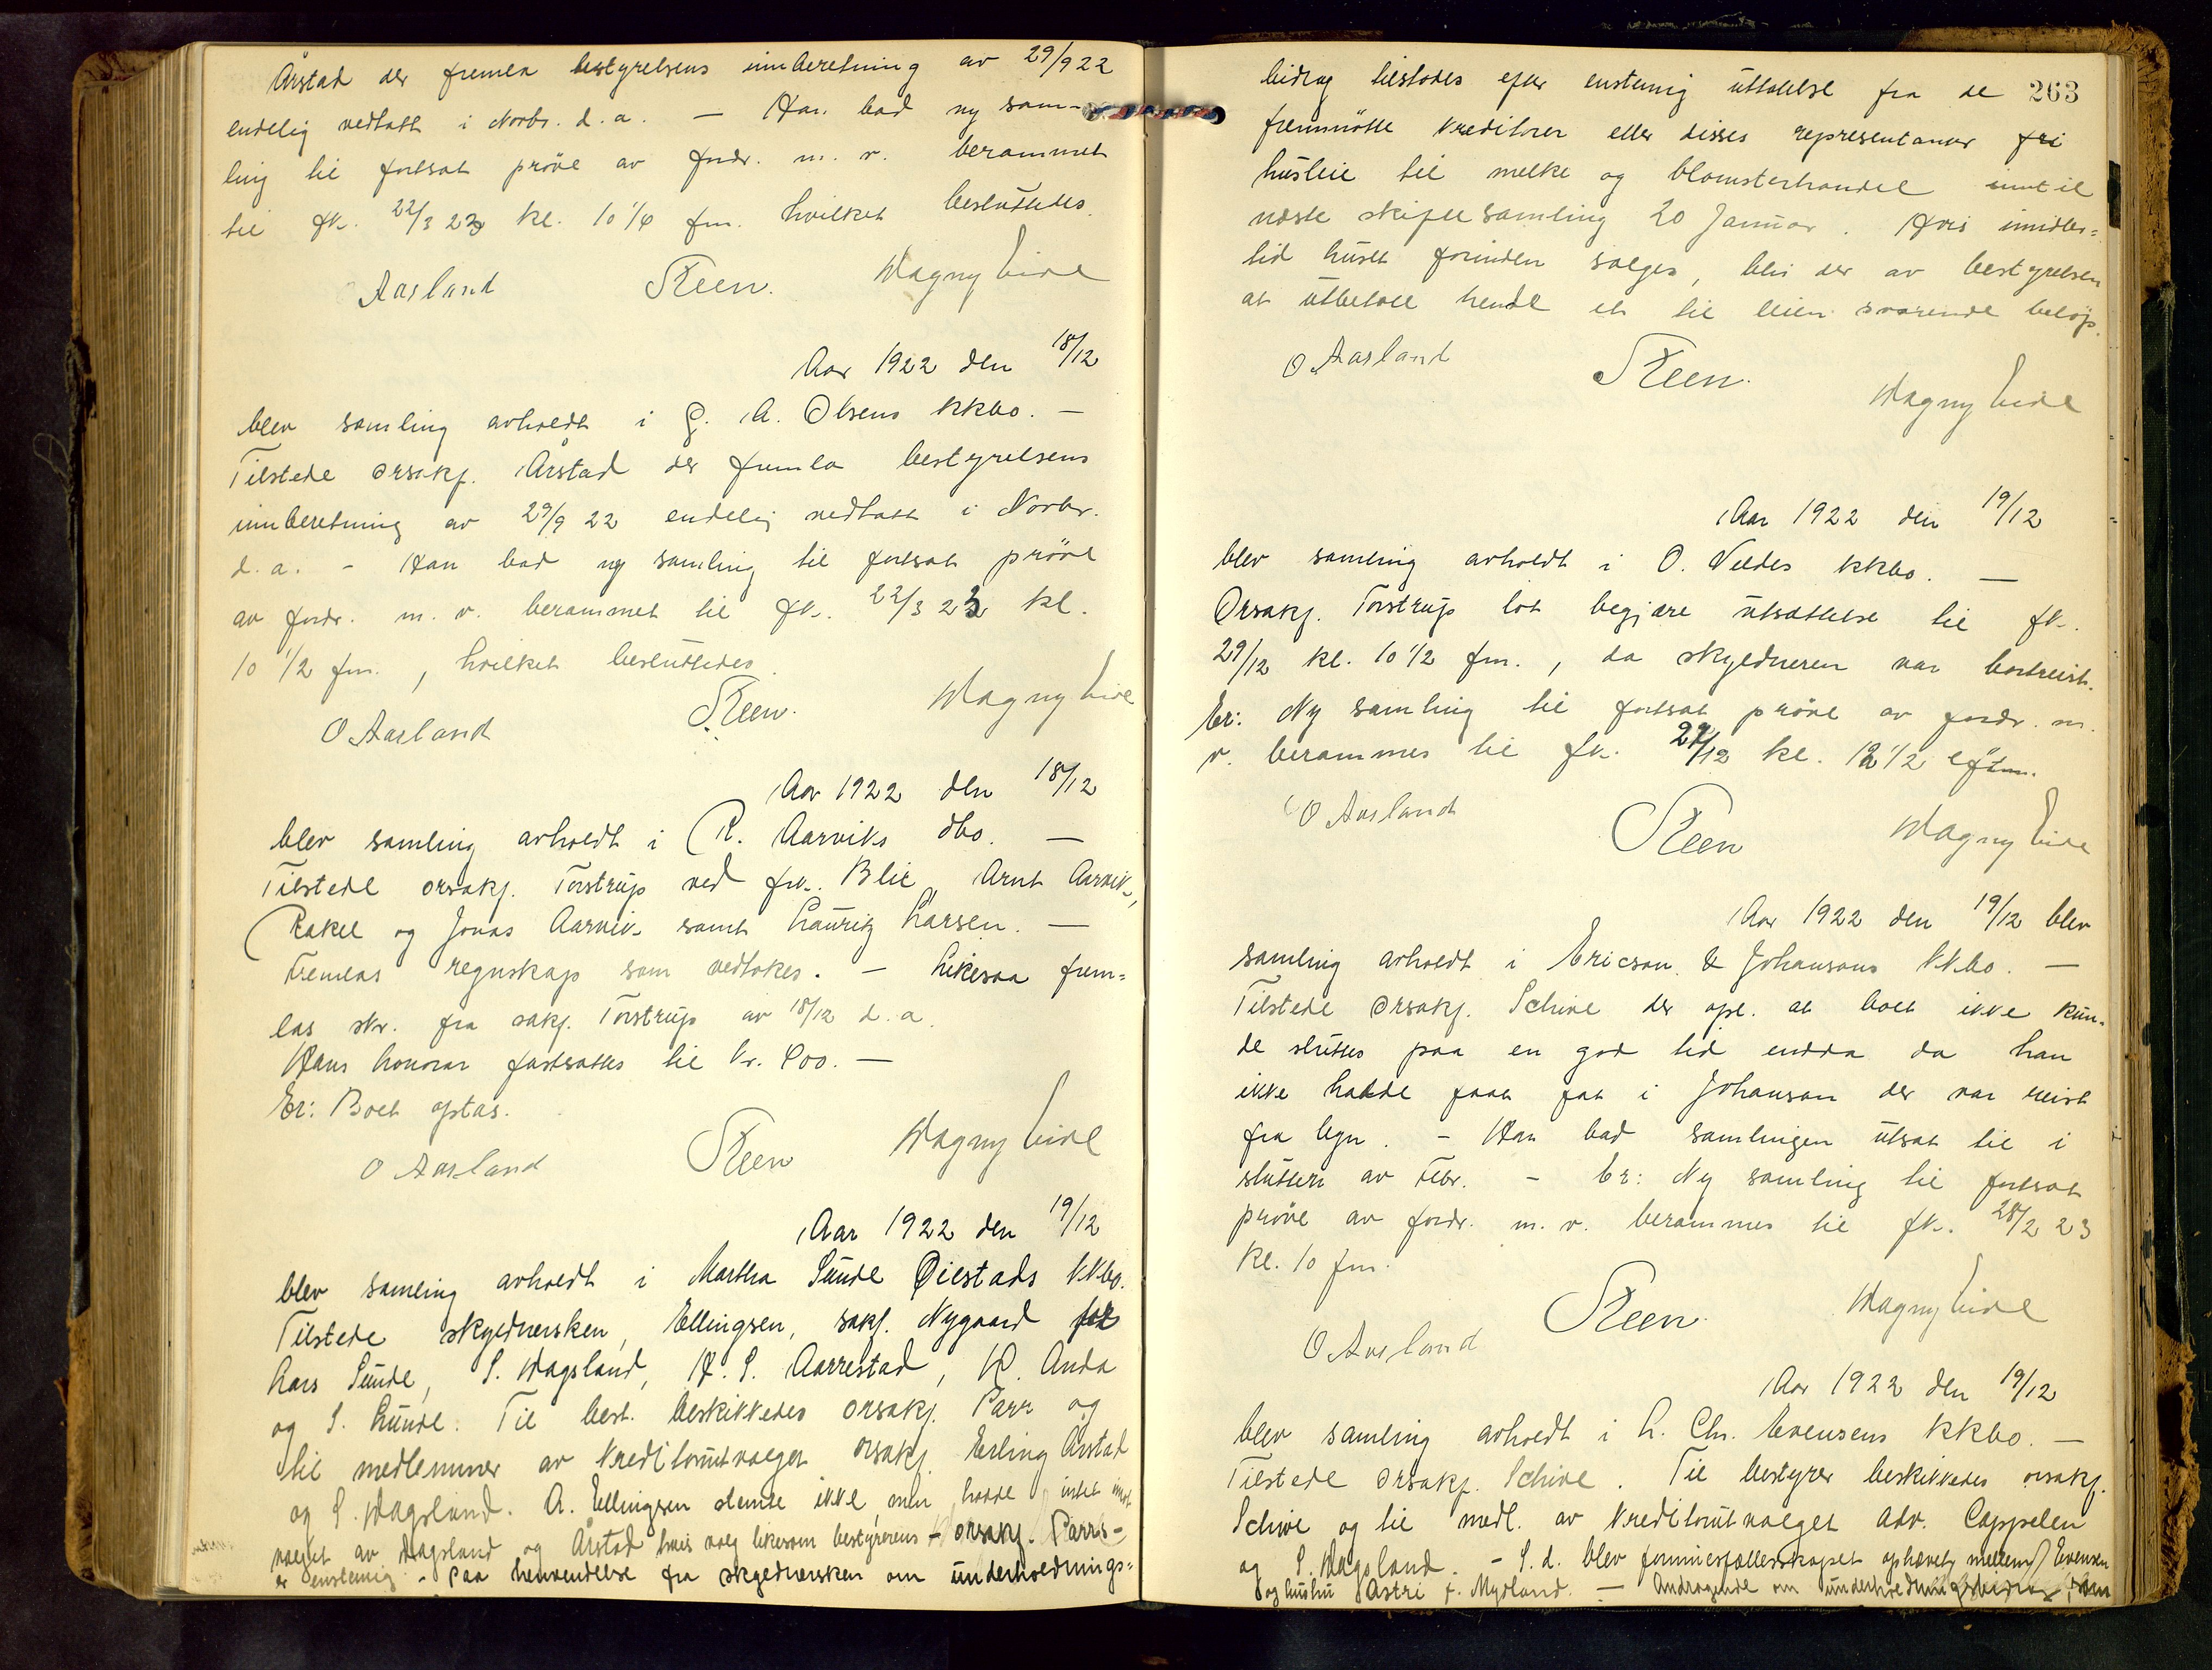 Årstad der fremla bestyrelsens innberetning av 29/9 22
endelig vedtatt i Norbr. d. a. — Han bad ny sam-
ling til fortsat prøve av fordr. m. v. berammet
til fk. 22/3 23 kl. 10 1/4 fm. hvilket besluttedes.
Aasland Steen. Magny Eide
Aar 1922 den 18/12
blev samling avholdt i G. A. Olsens kkbo. —
Tilstede orsakf. Årstad der fremla bestyrelsens
innberetning av 29/9 22 endelig vedtatt i Norbr.
d. a. - Han bad ny samling til fortsat prøve
av fordr. m. v. berammet til fk. 22/3 23 kl.
10 1/2 fm., hvilket besluttedes
O Aasland Steen. Magny Eide
Aar 1922 den 18/12
blev samling avholdt i R. Aarviks dbo. —
Tilstede orsakf. Torstrup ved frk. Blie, Arnt Aarvik,
Rakel og Jonas Aarvik samt Lauritz Larsen. —
Fremlas regnskap som vedtokes. — Likesaa frem=
las skr. fra sakf. Torstrup av 18/12 d. a.
Hans honorar fastsattes til kr. 800. —
Er: Boet optas.
O Aasland Steen Magny Eide
Aar 1922 den 19/12
blev samling avholdt i Martha Sunde Øiestads kkbo.
Tilstede skyldnersken, Ellingsen, sakf. Nygaard for
Lars Sunde, S. Hagsland, H. S. Aarrestad, H. Anda
og S. Lunde. Til best. beskikkedes orsakf. Parr og
til medlemmer av kreditorutvalget orsakf. Erling Årstad
og S. Hagsland. A. Ellingsen stemte ikke, men hadde intet imot
valget av Hagsland og Årstad hvis valg likesom bestyrerens - orsakf. Parrs -
er enstemig - Paa henvendelse fra skyldnersken om underholdnings=
263
bidrag tilstodes efter enstemig uttalelse fra de
fremmøtte kreditorer eller disses representanter fri
husleie til melke og blomsterhandel inntil
næste skiftesamling 20 Januar. Hvis imidler=
tid huset forinden sælges, blir der av bestyrelsen
at utbetale hende et til leien svarende beløp.
O Aasland Steen. Magny Eide
Aar 1922 den 19/12
blev samling avholdt i O. Veldes kkbo. —
Orsakf. Torstrup lot begjære utsættelse til fk.
29/12 kl. 10 1/2 fm., da skyldneren var bortreist.
Er: Ny samling til fortsat prøve av fordr. m.
v. berammes til fk. 29/12 kl. 12 1/2 eftm.
O Aasland Steen Magny Eide
Aar 1922 den 19/12 blev
samling avholdt i Ericson & Johansons kkbo. —
Tilstede orsakf. Schive der opl. at boet ikke kun-
de sluttes paa en god tid endda da han
ikke hadde faaet fat i Johanson der var reist
fra byn. - Han bad samlingen utsat til i
slutten av Febr. - Er: Ny samling til fortsat
prøve av fordr. m. v. berammes til fk. 28/2 23
kl. 10 fm.
O Aasland Steen. Magny Eide
Aar 1922 den 19/12
blev samling avholdt i L. Chr. Evensens kkbo. —
Tilstede orsakf. Schive. Til bestyrer beskikkedes orsakf.
Schive og til medl. av kreditorutvalget adv. Cappelen
og S. Hagsland. - S. d. blev formuesfællesskapet ophævet mellem Evensen
og hustru Astri f. Mydland. — Andragende om underholdningsbidrag